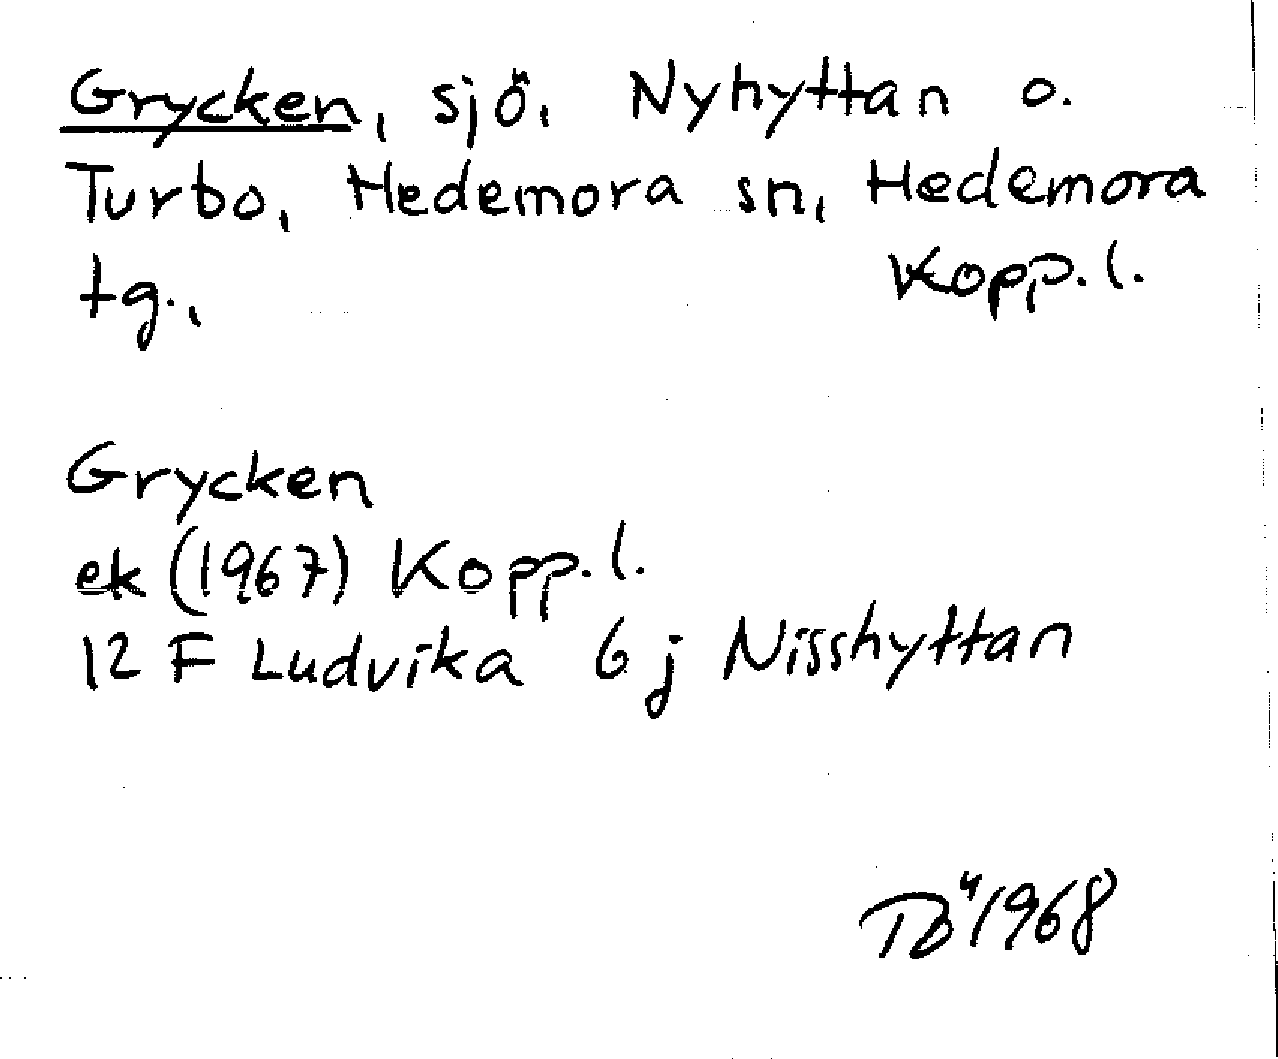 Grycken, sjö, Nyhyttan o.
Turbo, Hedemora sn, Hedemora
tg., Kopp. l.
Grycken
ek (1967) Kopp. l.
12 F Ludvika 6 j Nisshyttan
1968